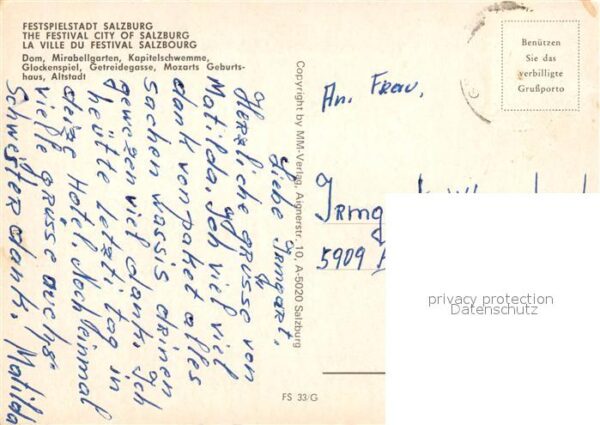 FESTSPIELSTADT SALZBURG
THE FESTIVAL CITY OF SALZBURG
LA VILLE DU FESTIVAL SALZBOURG
Dom, Mirabellgarten, Kapitelschwemme,
Glockenspiel, Getreidegasse, Mozarts Geburts-
haus, Altstadt
Liebe Irmgart,
Herzliche grüsse von
Matilda. Ich viel viel
dank von paket alles
sachen wassis drinen
gewezen viel dank. Ich
heütte letzti tag in
Hotel. Noch einmal
vielle grüsse auch
Schwester dank. Matilda
Copyright by MM-Verlag, Aignerstr. 10, A-5020 Salzburg
FS 33/G
Benützen
Sie das
verbilligte
Grußporto
An. Frau.
Irmg
5909
privacy protection
Datenschutz